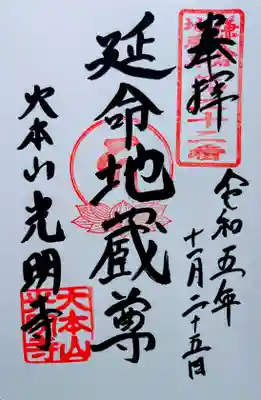 奉拝
令和五年
十一月二十五日
延命地蔵尊
天本山光明寺
天本山